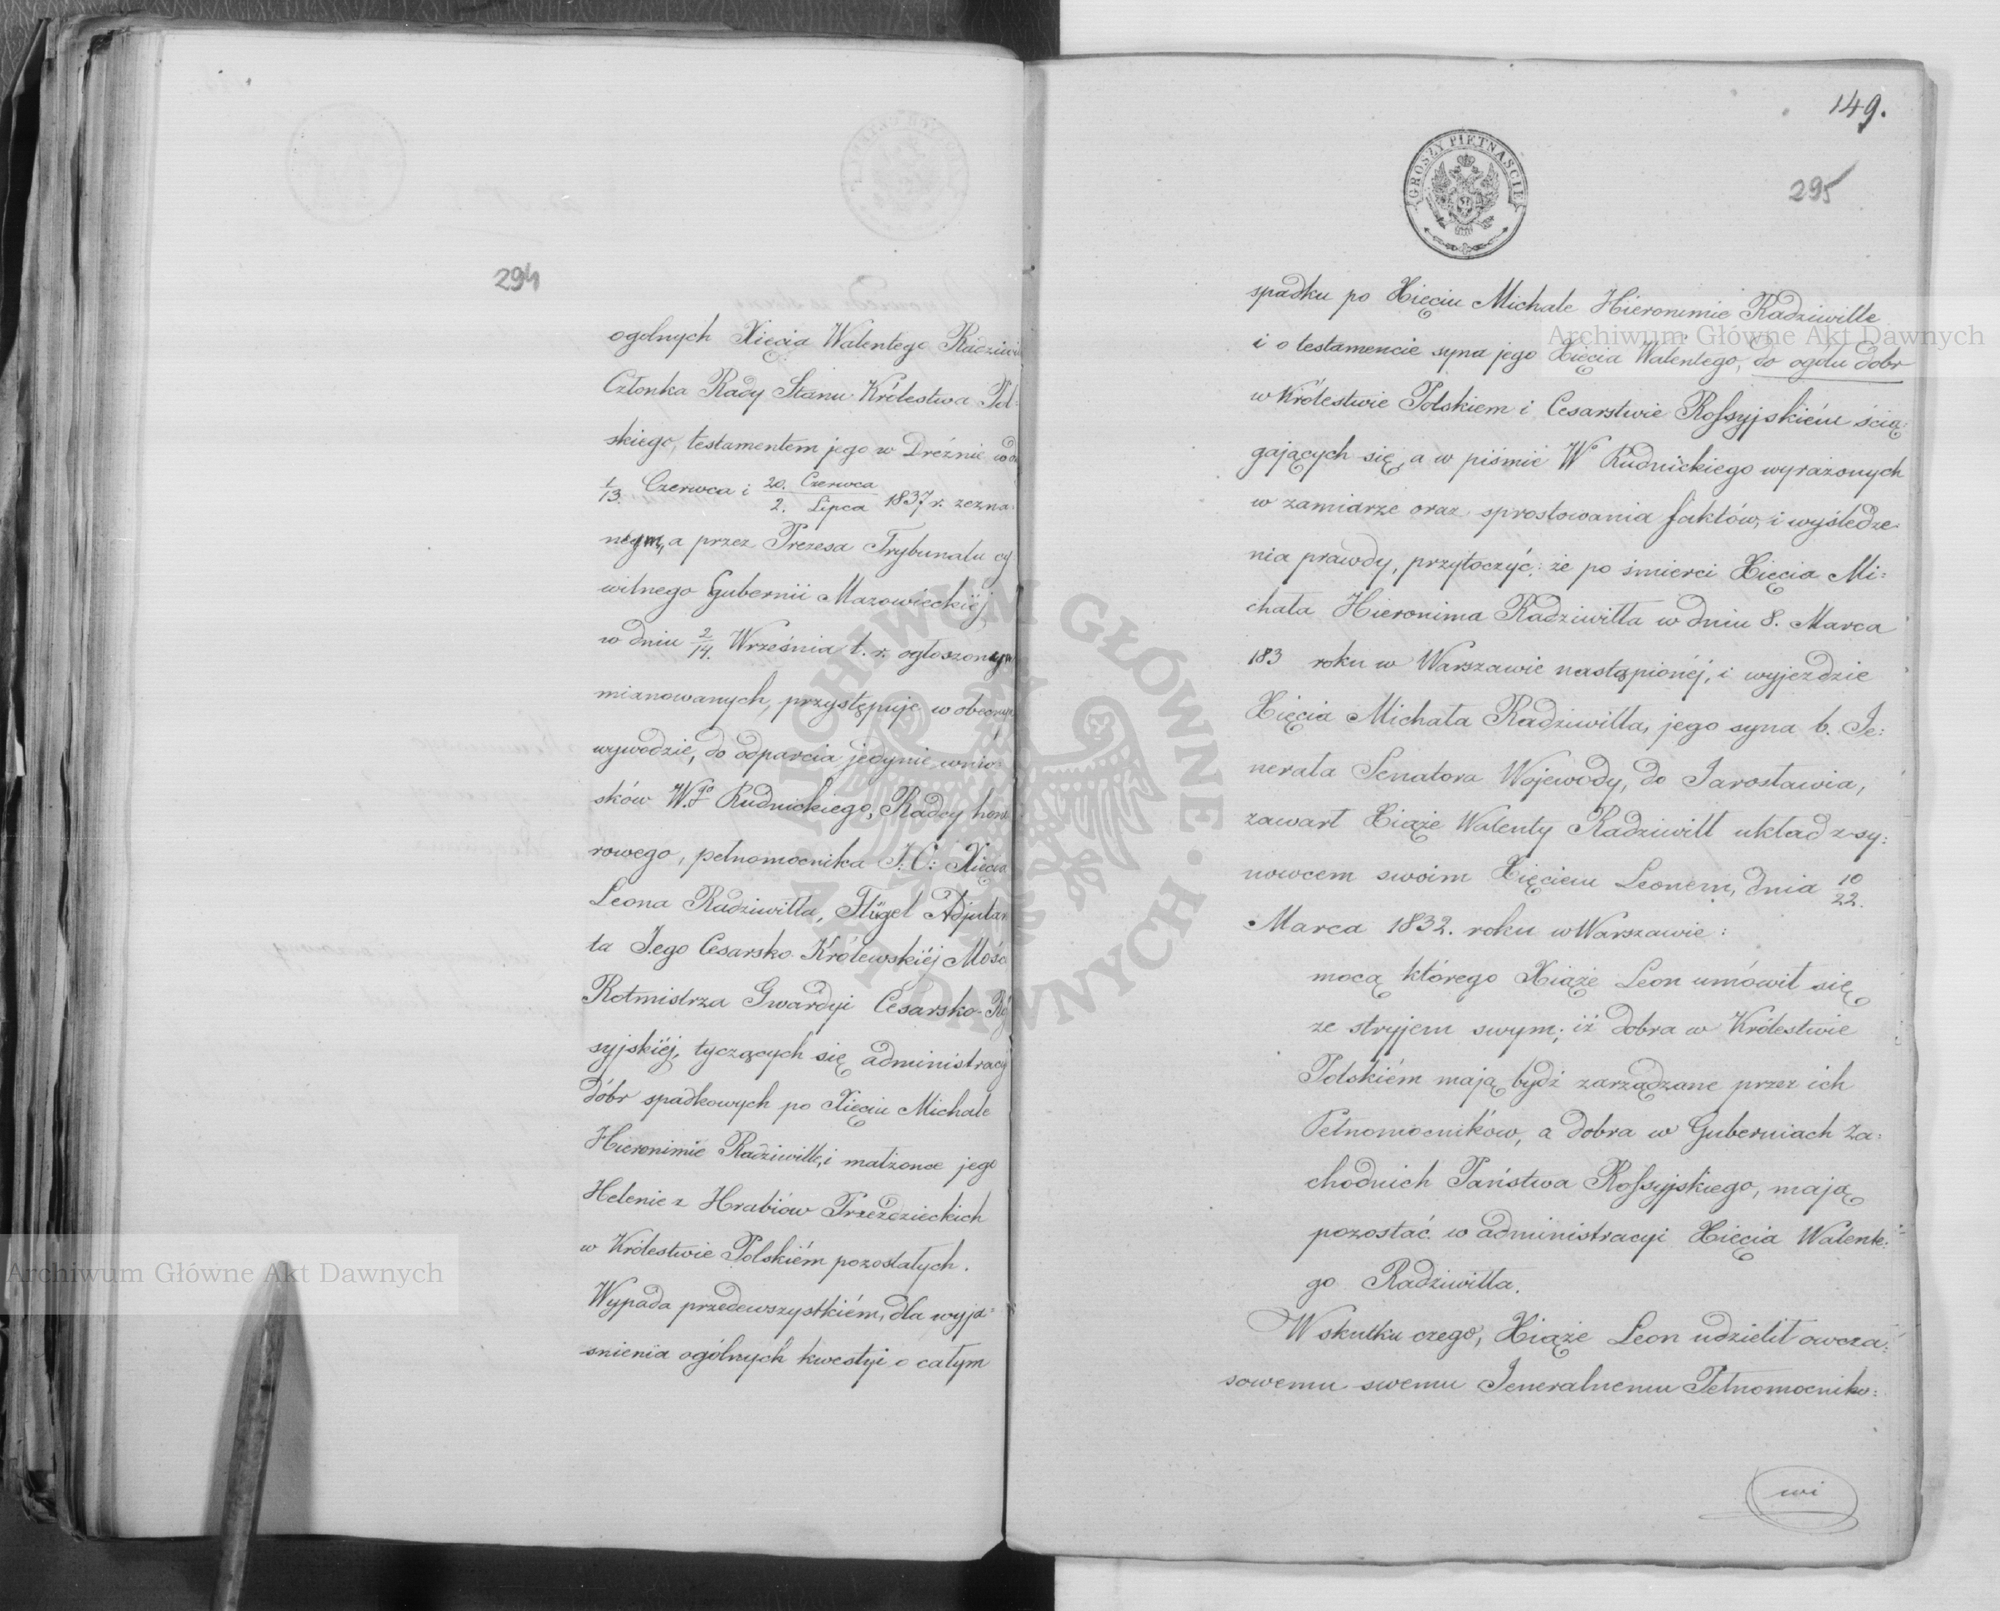 294
ogolnych Xięcia Walentego Radziwi
Członka Rady Stanu Królestwa Pol:
skiego, testamentem jego w Dreźnie
1/13 Czerwca i 20. Czerwca / 2. Lipca 1837 r. zezna:
nym, a przez Prezesa Trybunału cy
wilnego Gubernii Mazowieckiéj
w dniu 2/14. Września t. r. ogłoszonym
mianowanych, przystępuje w obecnym
wywodzie, do odparcia jedynie wnio
sków W.go Rudnickiego, Radcy hono
rowego, pełnomocnika J: O: Xięcia
Leona Radziwiłła, Flügel Adjutan
ta Jego Cesarsko-Królewskiéj Mości
Rotmistrza Gwardyi Cesarsko-Ro
syjskiéj, tyczących się administracyi
dóbr spadkowych po Xięciu Michale
Hieronimie Radziwille, i małżonce jego
Helenie z Hrabiów Przezdzieckich
w Królestwie Polskiém pozostałych.
Wypada przedewszystkiém, dla wyja=
snienia ogólnych kwestyi o całym
149.
295
GROSZY PIĘTNAŚCIE
spadku po Xięciu Michale Hieronimie Radziwille
i o testamencie syna jego Xięcia Walentego, do ogółu dobr
w Królestwie Polskiem i Cesarstwie Rossyjskiém ścią:
gających się, a w piśmie Wo Rudnickiego wyrażonych
w zamiarze oraz sprostowania faktów, i wyśledze-
nia prawdy, przytoczyć: że po śmierci Xięcia Mi:
chała Hieronima Radziwiłła w dniu 8. Marca
183 roku w Warszawie nastąpionéj, i wyjezdzie
Xięcia Michała Radziwiłła, jego syna b. Je:
nerała Senatora Wojewody, do Jarosławia,
zawarł Xiąże Walenty Radziwiłł układ z sy:
nowcem swoim Xięciem Leonem, dnia 10/22.
Marca 1832. roku w Warszawie:
mocą którego Xiąże Leon umówił się
ze stryjem swym; iż dobra w Królestwie
Polskiém mają bydź zarządzane przez ich
Pełnomocników, a dobra w Guberniach Za:
chodnich Państwa Rossyjskiego, mają
pozostać w administracyi Xięcia Walente:
go Radziwiłła.
W skutku czego, Xiąże Leon udzielił owcza:
sowemu swemu Jeneralnemu Pełnomocniko:
wi
Archiwum Główne Akt Dawnych
Archiwum Główne Akt Dawnych
ARCHIWUM GŁÓWNE · AKT DAWNYCH ·